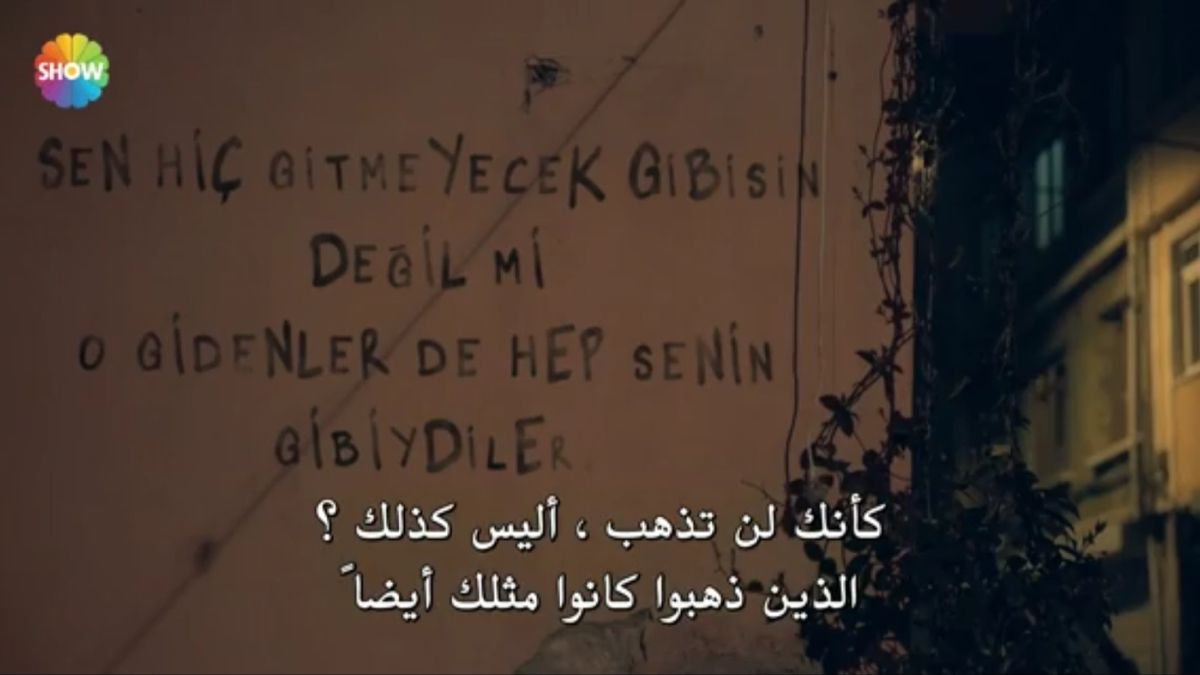 SHOW
SEN HİÇ GİTMEYECEK GİBİSİN
DEĞİL Mİ
O GİDENLER DE HEP SENİN
GİBİYDİLER
كأنك لن تذهب ، أليس كذلك ؟
الذين ذهبوا كانوا مثلك أيضاً